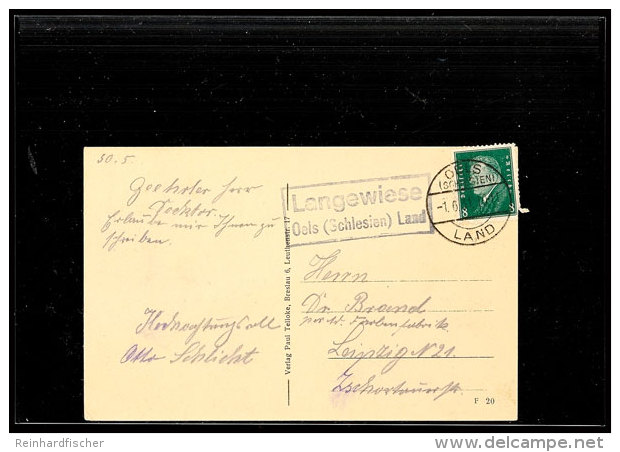 30.5.
Geehrter Herr
Docktor.
Erlaube mir Ihnen zu
schreiben.
Hochachtungsvoll
Otto Schlicht
Verlag Paul Telloke, Breslau 6, Leuthenstr. 17
Langewiese
Oels (Schlesien) Land
OELS
(SCHLESIEN)
-1.6
LAND
8 8
Herrn
Dr. Brand
Farbenfabrik
Leipzig N 21.
Zschortauerstr.
F 20
Reinhardfischer
delcampe.net